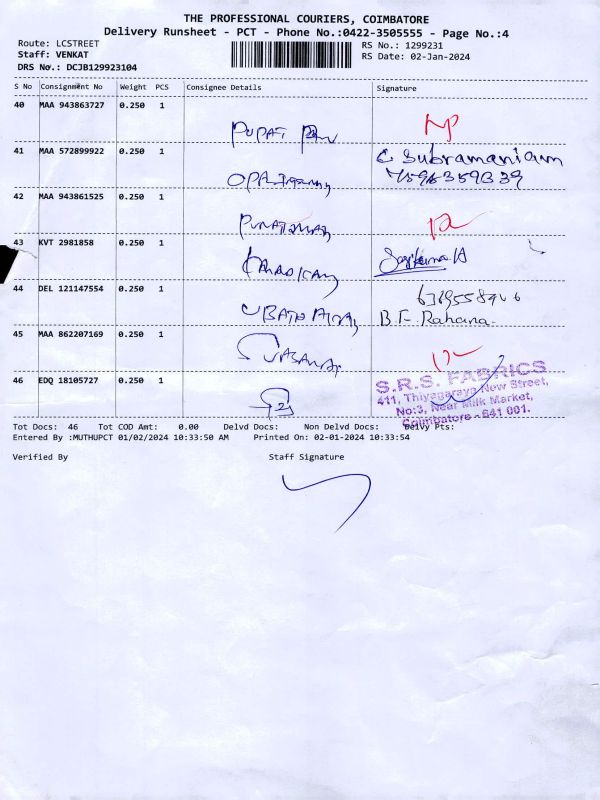 THE PROFESSIONAL COURIERS, COIMBATORE
Delivery Runsheet - PCT - Phone No.:0422-3505555 - Page No.:4
Route: LCSTREET
Staff: VENKAT
DRS No.: DCJB129923104
RS No.: 1299231
RS Date: 02-Jan-2024
S No Consignment No Weight PCS Consignee Details Signature
40 MAA 943863727 0.250 1
41 MAA 572899922 0.250 1
C Subramaniam
42 MAA 943861525 0.250 1
43 KVT 2981858 0.250 1
44 DEL 121147554 0.250 1
B.F. Rahana.
45 MAA 862207169 0.250 1
46 EDQ 18105727 0.250 1
S.R.S. FABRICS
411, Thiyagaraya New Street,
No:3, Near Milk Market,
Coimbatore - 641 001.
Tot Docs: 46 Tot COD Amt: 0.00 Delvd Docs: Non Delvd Docs: Delvy Pts:
Entered By :MUTHUPCT 01/02/2024 10:33:50 AM Printed On: 02-01-2024 10:33:54
Verified By Staff Signature